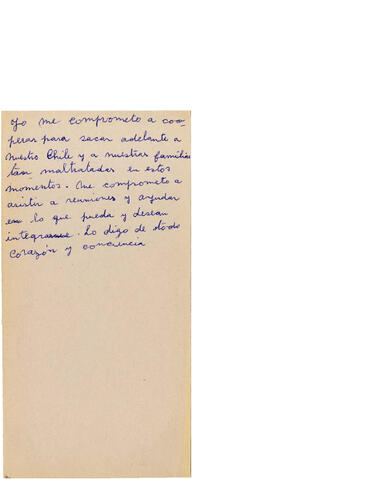 Yo me comprometo a coo-
perar para sacar adelante a
nuestro Chile y a nuestras familias
tan maltratadas en estos
momentos. Me comprometo a
asistir a reuniones y ayudar
en lo que pueda y desean
Lo digo de todo
corazón y conciencia